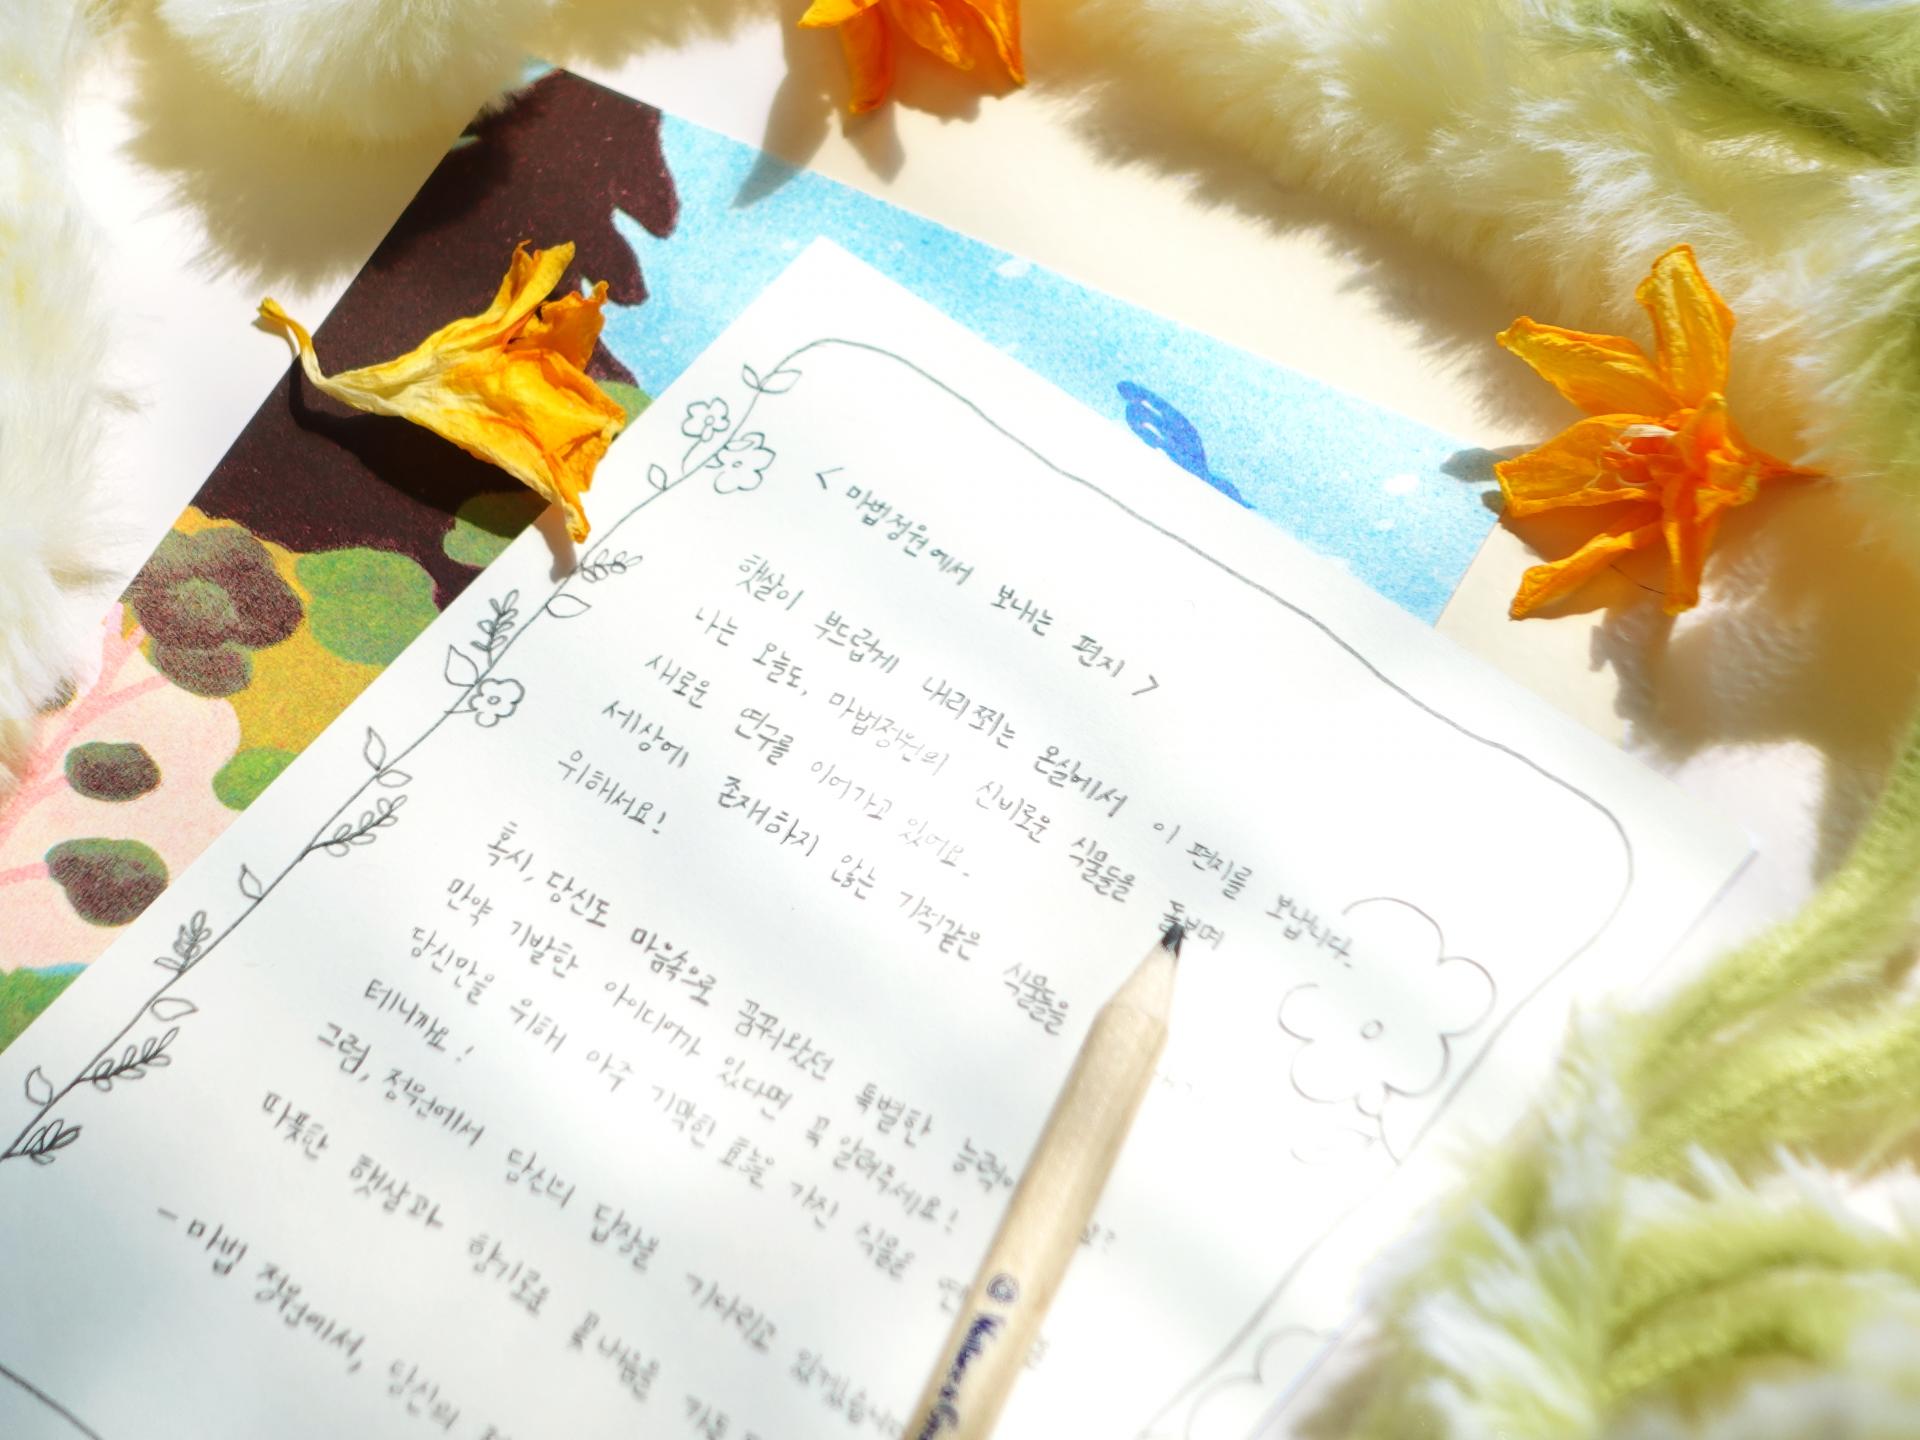 < 마법정원에서 보내는 편지 >
햇살이 부드럽게 내리쬐는 온실에서 이 편지를 보냅니다.
나는 오늘도, 마법정원의 신비로운 식물들을 돌보며
새로운 연구를 이어가고 있어요.
세상에 존재하지 않는 기적같은 식물들을
위해서요!
혹시, 당신도 마음속으로 꿈꿔왔던 특별한
만약 기발한 아이디어가 있다면 꼭 알려주세요!
당신만을 위해 아주 기막힌 효능을 가진 식물을
테니까요!
그럼, 정원에서 당신의 답장을 기다리고
따뜻한 햇살과 향기로운 꽃내음을
- 마법 정원에서, 당신의